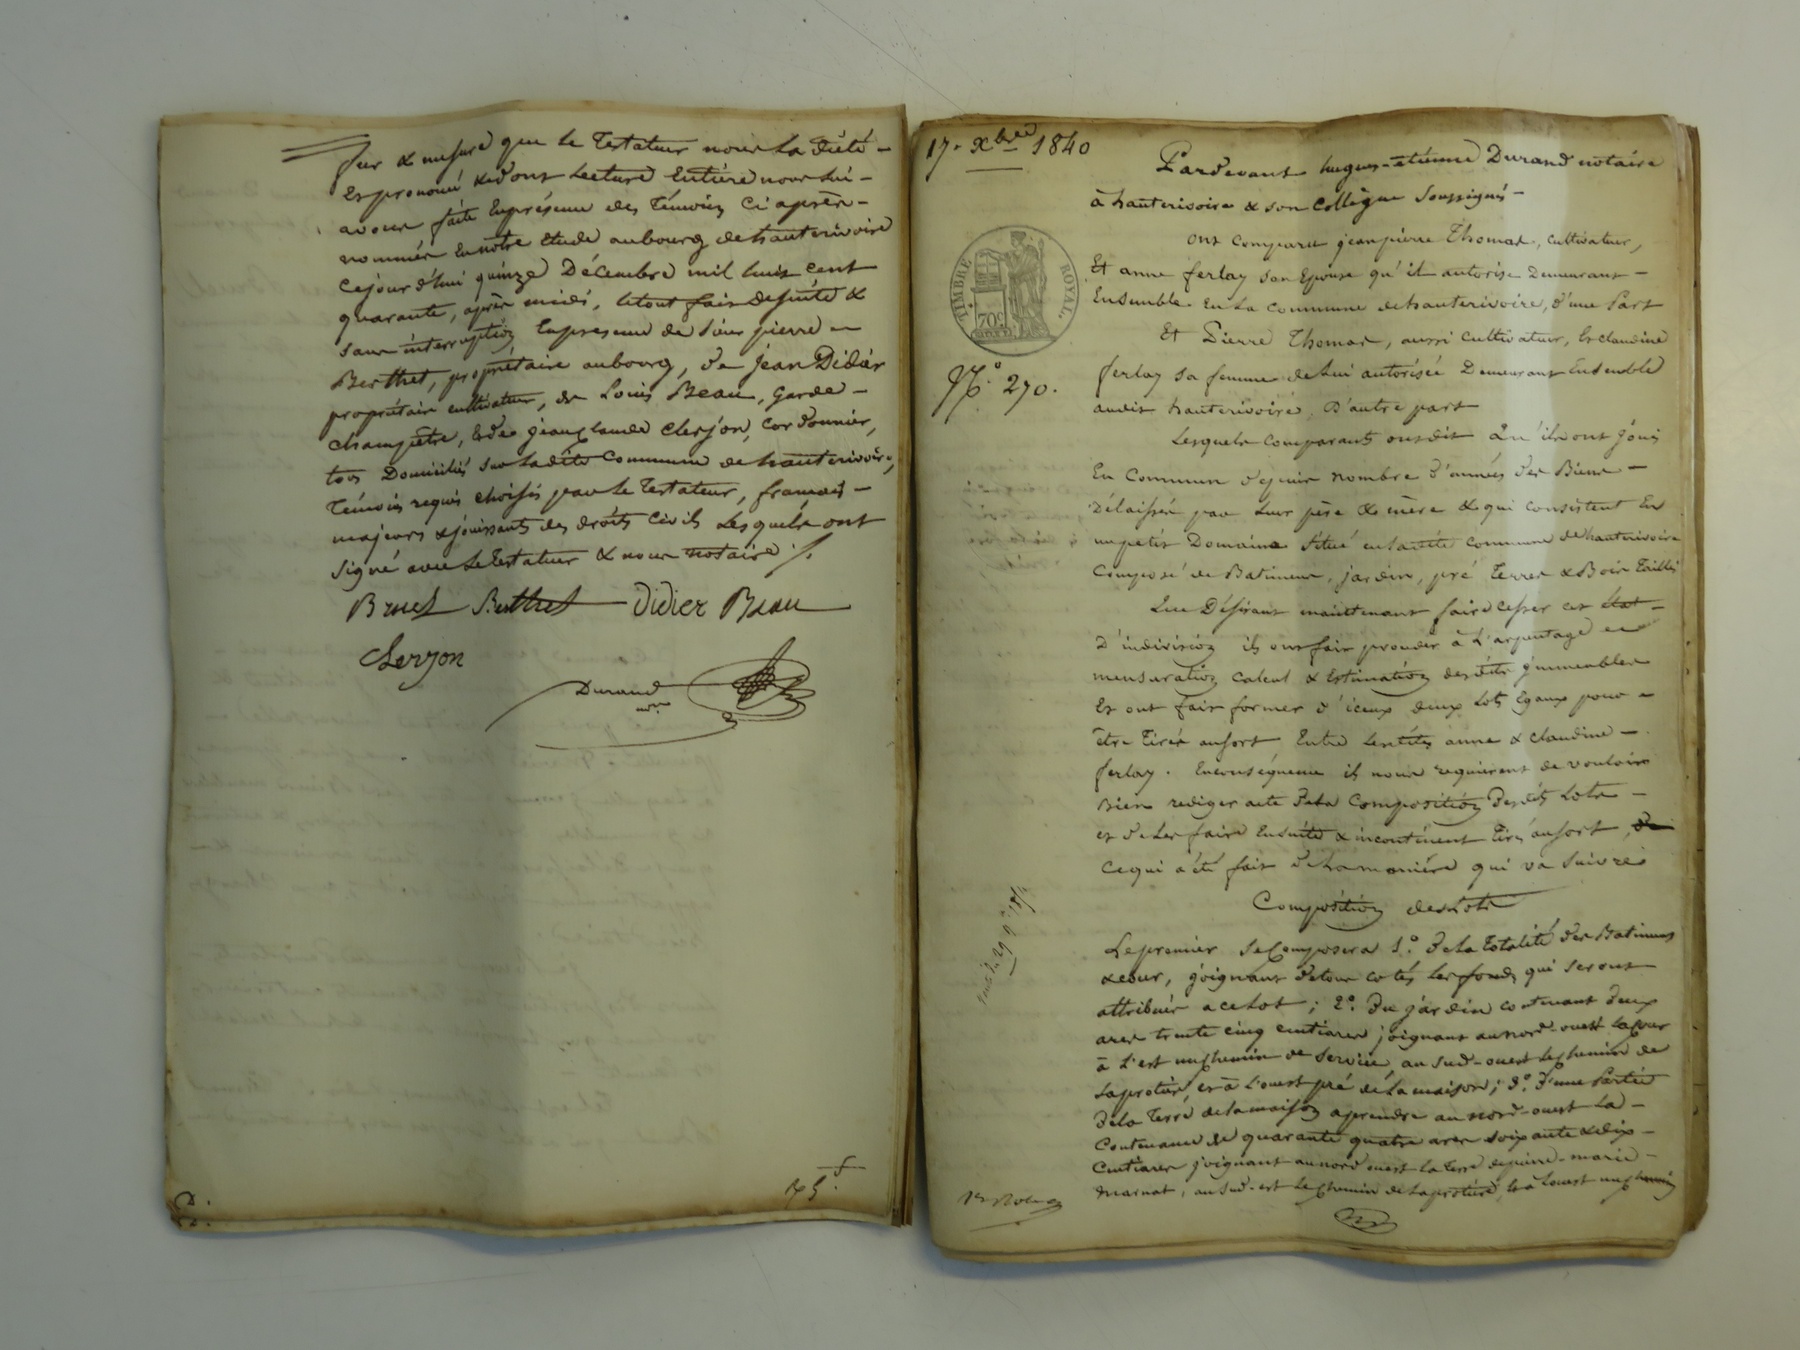 fur & mesure que le Testateur nous la dicté -
et prononcé & dont lecture Entière nous lui -
avons faite Enprésence des Témoins Ci après -
nommés En notre Etude aubourg dehauterivoire
Cejourd'hui quinze Décembre mil huit cent
quarante, après midi, le tout fait desuite &
sans interruption Enprésence de Sieur pierre -
Berthet, propriétaire aubourg, de jean Didier
propriétaire cultivateur, de Louis Beau, Garde -
champêtre, & de jeanclaude Clerjon, Cordonnier,
tous Domiciliés sur ladite Commune de hauterivoire,
Témoins requis choisis par le Testateur, français -
majeurs & jouissants des droits Civils Lesquels ont
signé avec le Testateur & nous notaire /.
Bruel Berthet Didier Beau
Clerjon
Durand
nre
D.
17. Xbre 1840
Pardevant hugues-etienne Durand notaire
à hauterivoire & son Collègue Soussignés -
TIMBRE ROYAL
70c
ont comparu jeanpierre Thomas, cultivateur,
Et anne ferlay son Epouse qu'il autorise Demeurant -
Ensemble En la Commune dehauterivoire, d'une Part
Et Pierre Thomas, aussi Cultivateur, Et claudine
No. 270.
ferlay sa femme de lui autorisée Demeurant Ensemble
audit hauterivoire, D'autre part
Lesquels Comparants ont dit Qu'ils ont joui
En Commun depuis nombre d'années des Biens -
Délaissés par leur père & mère & qui consistent En
un petit Domaine Situé en ladite Commune de hauterivoire
Composé de Batiments, jardin, pré Terres & Bois Taillis
Que Désirant maintenant faire cesser cet état -
D'indivision ils ont fait procéder à L'arpentage et
mensuration Calcul & Estimation desdits jmmeubles
Et ont fait former d'iceux deux Lots Egaux pour -
être Tirés ausort Entre lesdites anne & claudine -
ferlay. Enconséquence ils nous requièrent de vouloir
Bien rediger acte dela Composition desdits Lots -
et de les faire Ensuite & incontinent Tirer ausort,
Cequi a été fait de la manière qui va Suivre
Composition des Lots
Le premier se Composera 1.° de la Totalité des Batiments
& cour, joignant de tous cotés les fonds qui seront
attribués a ce Lot; 2.° Du jardin contenant Deux
ares trente cinq centiares joignant au nord-ouest la Cour
à l'est un Chemin de Service, au Sud-ouest le Chemin de
Laproture, et à l'ouest pré de la maison; 3.° d'une Partie
de la Terre de la maison aprendre au nord-ouest La -
Contenance de quarante quatre ares soixante & dix -
Centiares joignant au nord ouest la Terre de pierre-marie -
marnat, au Sud-est le Chemin de Laproture, & à l'ouest un Chemin